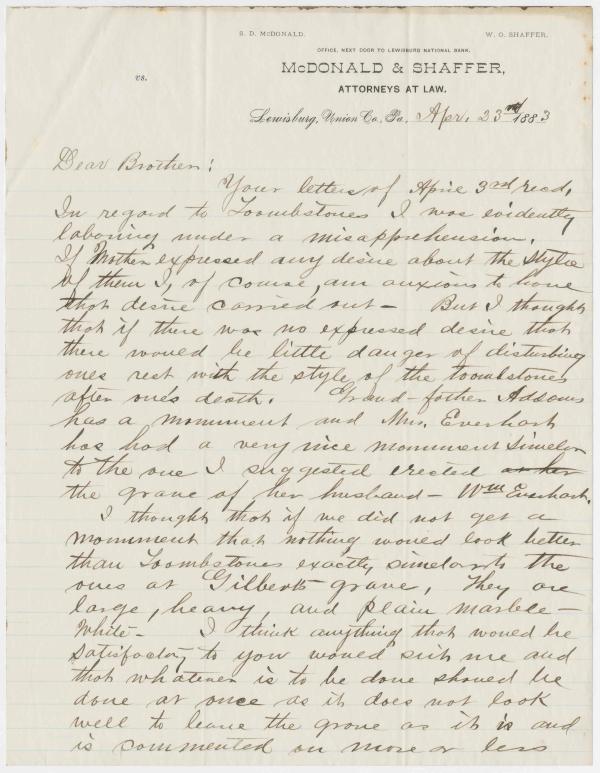 S. D. McDONALD. W. O. SHAFFER.
OFFICE, NEXT DOOR TO LEWISBURG NATIONAL BANK.
vs. McDONALD & SHAFFER,
ATTORNEYS AT LAW.
Lewisburg, Union Co., Pa., Apr. 23rd 1883
Dear Brother:
Your letters of April 3rd recd,
In regard to Toombstones I was evidently
laboring under a misapprehension.
If Mother expressed any desire about the style
of them I, of course, am auxious to have
that desire carried out – But I thought
that if there was no expressed desire that
there would be little danger of disturbing
ones rest with the style of the toombstones
after one's death. Grand-father Addams
has a monument and Mrs. Everhart
has had a very nice monument similar
to the one I suggested erected or her
the grave of her husband – Wm Everhart.
I thought that if we did not get a
monument that nothing would look better
than Toombstones exactly similar to the
ones at Gilberts grave, They are
large, heavy, and plain marble –
White – I think anything that would be
satisfactory to you would suit me and
that whatever is to be done should be
done at once as it does not look
well to leave the grave as it is and
is commented on more or less